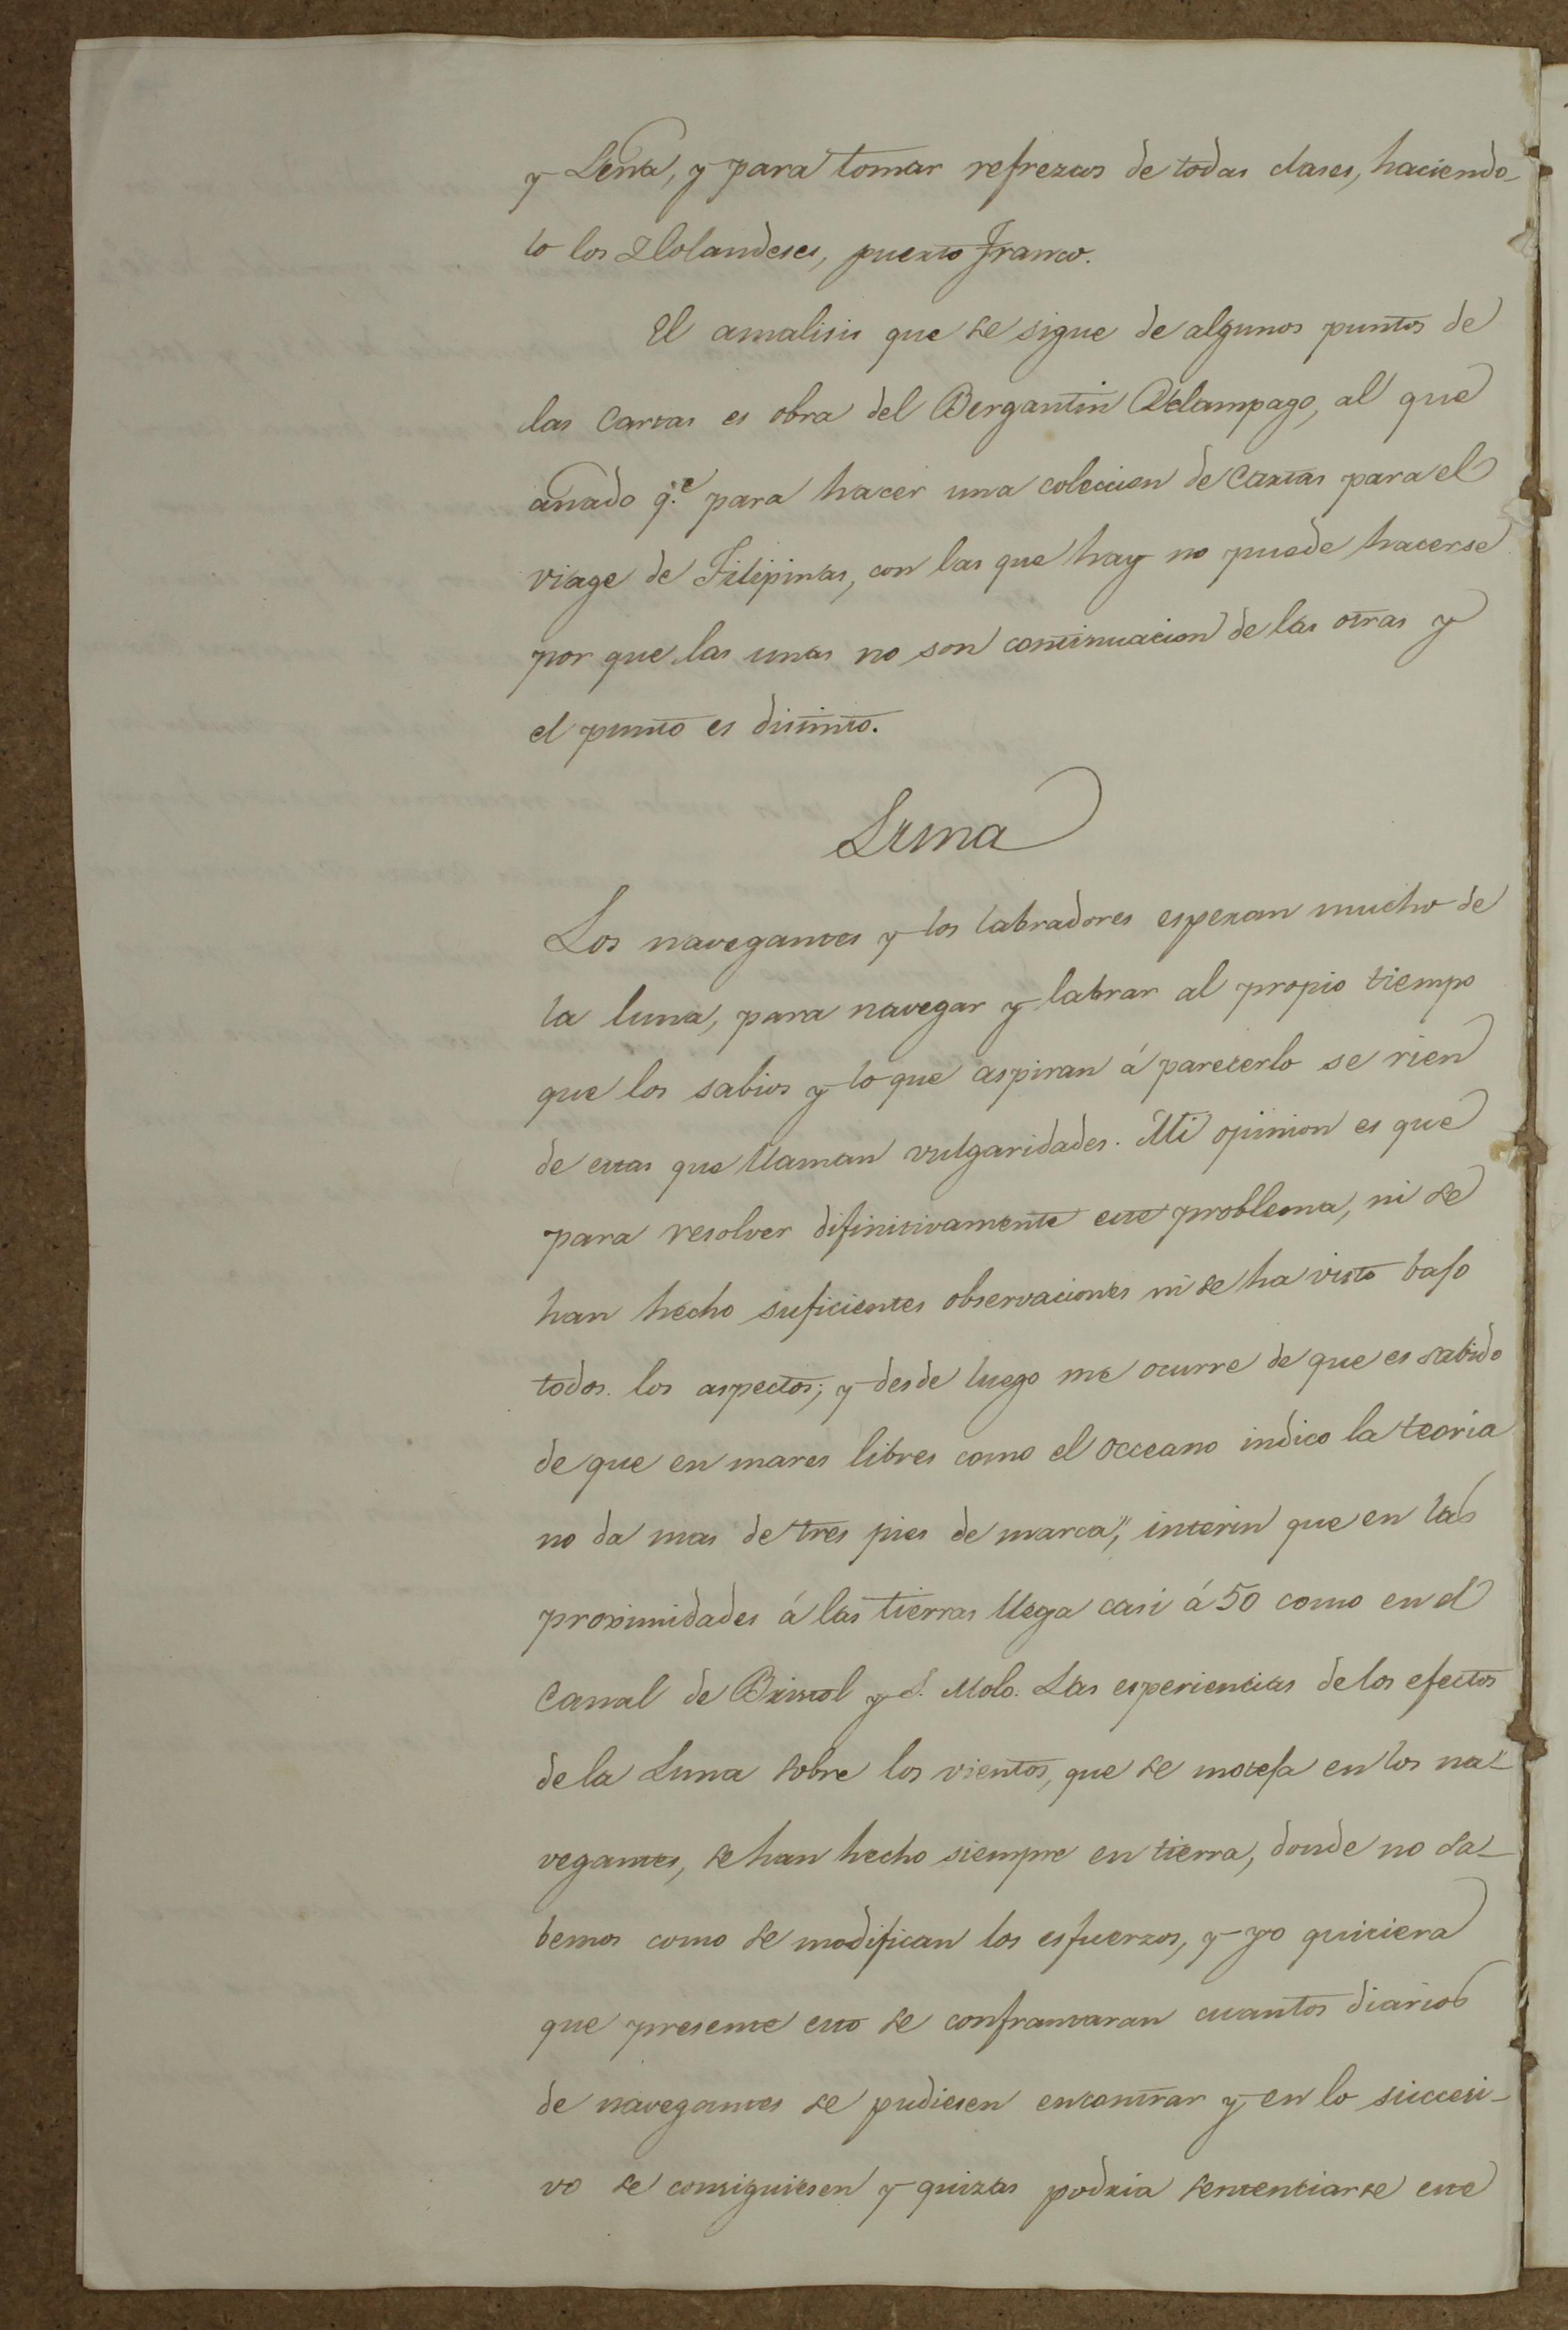 y Leña, y para tomar refrezcos de todas clases, haciendo-
lo los Holandeses, puerto franco.
El analisis que se sigue de algunos puntos de
las Cartas es obra del Bergantin Relampago, al que
añado q.e para hacer una coleccion de Cartas para el
viage de Filipinas, con las que hay no puede hacerse
por que las unas no son continuacion de las otras y
el punto es distinto.
Luna
Los navegantes y los labradores esperan mucho de
la luna, para navegar y labrar al propio tiempo
que los sabios y lo que aspiran á parecerlo se rien
de estas que llaman vulgaridades. Mi opinion es que
para resolver difinitivamente este problema, ni se
han hecho suficientes observaciones ni se ha visto bajo
todos los aspectos; y desde luego me ocurre de que es sabido
de que en mares libres como el occeano indico la teoria
no da mas de tres pies de marea, interin que en las
proximidades á las tierras llega casi á 50 como en el
Canal de Bristol y S. Malo. Las esperiencias de los efectos
de la Luna sobre los vientos, que se moteja en los na-
vegantes, se han hecho siempre en tierra, donde no sa-
bemos como se modifican los esfuerzos, y yo quiciera
que presente esto se confrantaran cuantos diarios
de navegantes se pudiesen encontrar y en lo succesi-
vo se consiguiesen y quizas podria sentenciarse este